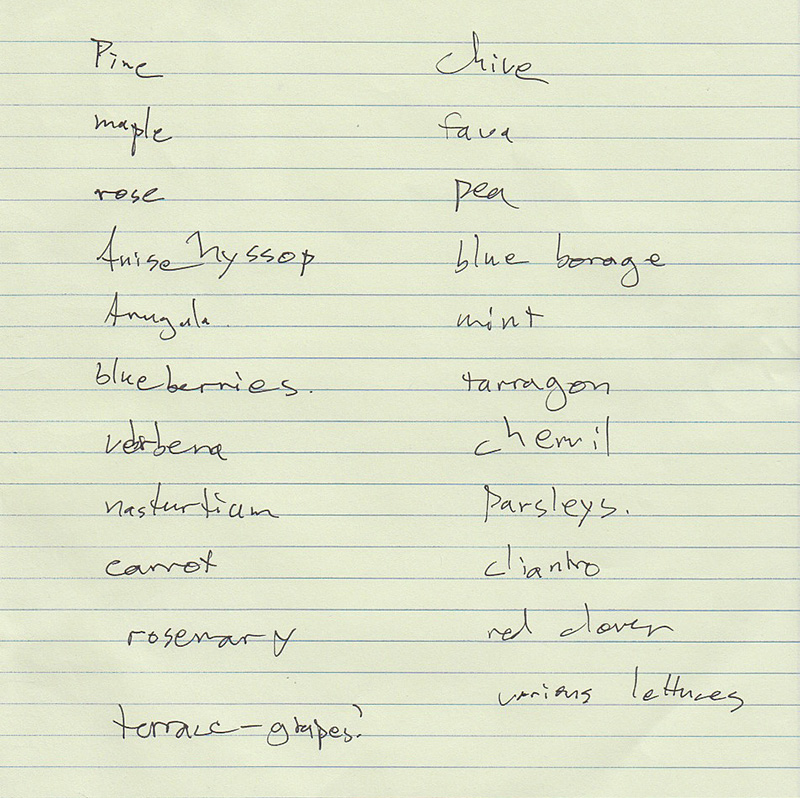 Pine
maple
rose
Anise hyssop
Arugala.
blueberries.
verbena
nasturtium
carrot
rosemary
terrace - grapes?
chive
fava
pea
blue borage
mint
tarragon
chervil
Parsleys.
cliantro
red clover
various lettuces